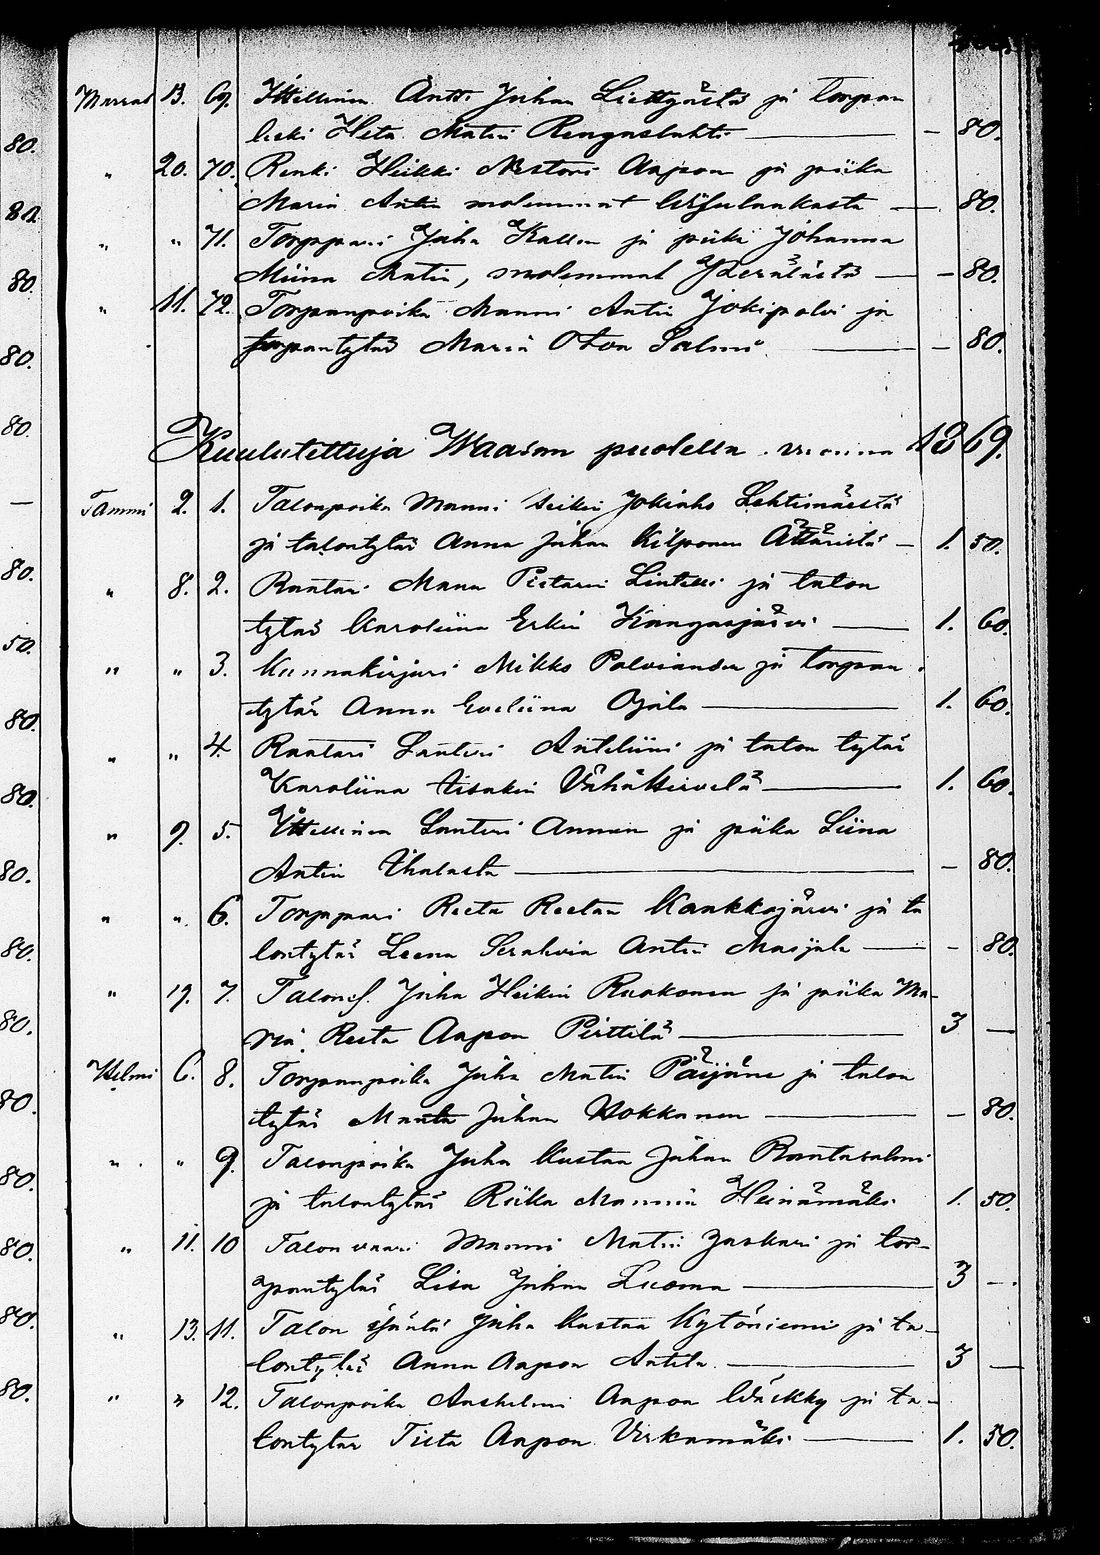 80.
80.
80.
80.
80.
80.
50.
80.
80.
80.
80.
80.
80.
80.
80.
80.
80.
Marras 13. 69. Ittellinen Antti Juhan Liettyästä ja torpan
leski Heta Matin Rengaslahti — 80.
" 20. 70. Renki Heikki Nestori Aapon ja piika
Maria Antin molemmat — 80.
" " 71. Torppari Juha Kallen ja piika Johanna
Miina Matin, molemmat Peräläistä — 80.
" 11. 72. Torpanpoika Manni Antin Jokipolvi ja
torpantytär Maria Oton Salmi — 80.
Kuulutettuja Waasan puolella vuonna 1869.
Tammi 2. 1. Talonpoika Manni Jokiaho Lehtimäestä
ja talontytär Anna Juhan Kilponen Ätäristä — 1. 50.
" 8. 2. Räätäri Manu Pietarin Lintelli ja talon
tytär Karoliina Erkin Kangasjärvi — 1. 60.
" " 3. Kunnankirjuri Mikko Palviander ja torpan
tytär Anna Eveliina Ojala — 1. 60.
" " 4. Räätäri Santeri Anteliini ja talon tytär
Karoliina Iisakin Vähäkirvelä — 1. 60.
" 9. 5. Ittellinen Santeri Annan ja piika Liina
Antin — 80.
" " 6. Torppari Reeta Reetan Kaukkojärvi ja ta
lontytär Leena Serahvia Antin — 80.
" 19. 7. Talons. Juha Heikin Ruokonen ja piika Ma-
ria Reeta Aapon Perttilä — 3 —
Helmi 6. 8. Torpanpoika Juha Matin Päijäne ja talon
tytär Juhan Hokkanen — 80.
" " 9. Talonpoika Juha Kustaa Juhan Rantasalmi
ja talontytär Riika Mannin Heinämäki 1. 50.
" 11. 10 Talon vaari Manni Matin Jaskari ja tor-
pantytär Lisa Juhan Luoma — 3 —.
" 13. 11. Talon isäntä Juha Kustaa Kytöniemi ja ta-
lontytär Anna Aapon Antila. — 3 —
" " 12. Talonpoika Anshelmi Aapon ja ta-
lontytär Tilta Aapon Virkamäki — 1. 50.